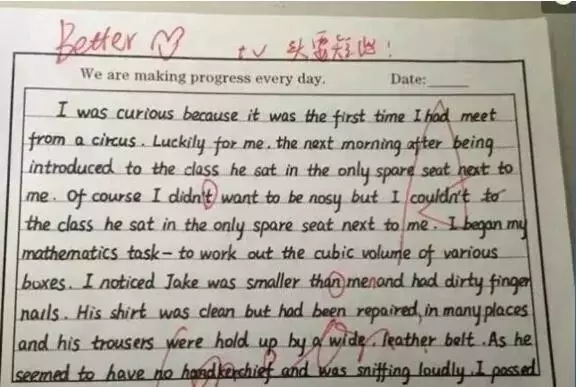 Better
tv 头要短些!
We are making progress every day. Date:
I was curious because it was the first time I had meet
from a circus. Luckily for me. the next morning after being
introduced to the class he sat in the only spare seat next to
me. Of course I didn't want to be nosy but I couldn't to
the class he sat in the only spare seat next to me. I began my
mathematics task-to work out the cubic volume of various
boxes. I noticed Jake was smaller than menand had dirty finger
nails. His shirt was clean but had been repaired, in many places
and his trousers were hold up by a wide, leather belt. As he
seemed to have no handkerchief and was sniffing loudly. I passed